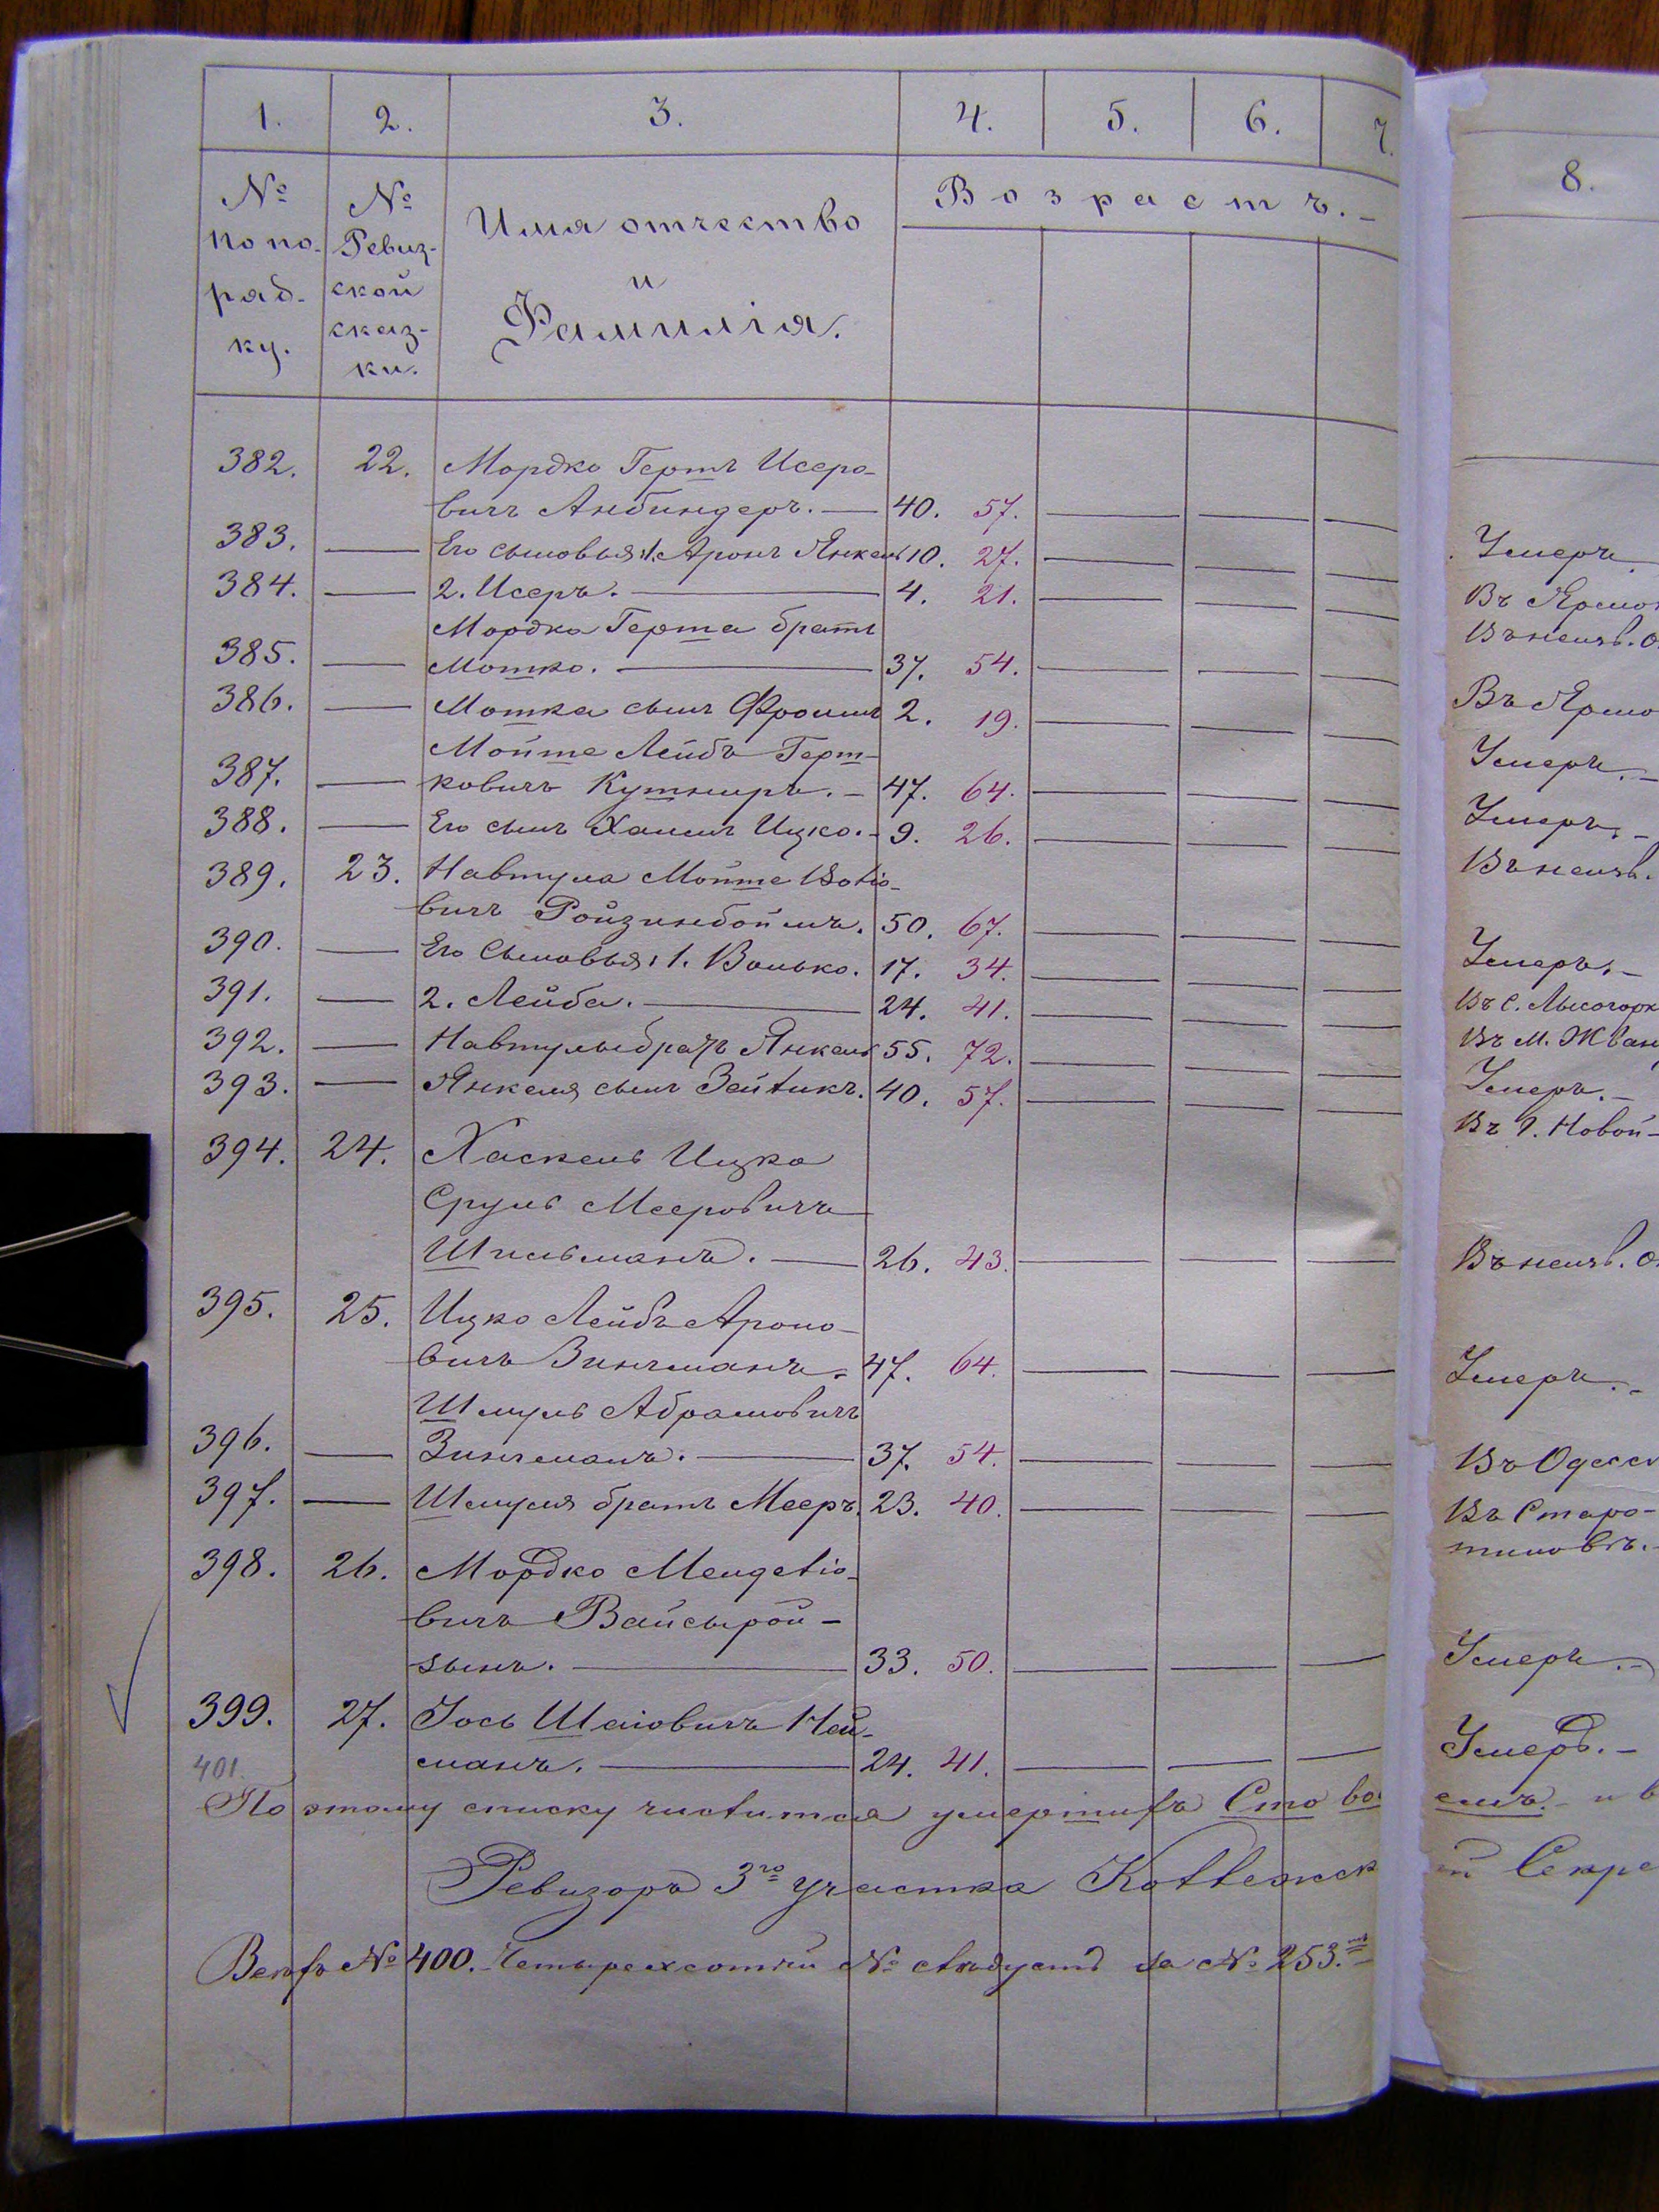 1. 2. 3. 4. 5. 6. 7.
8.
№ по по- ряд- ку.
№ Ревиз- ской сказ- ки.
Имя отчество
и
Фамилія.
Возрастъ.
382. 22. Мордко Гертъ Исеро-
вичъ Анбиндеръ. — 40. 57. — — — Умеръ
383. — Его сыновья: 1. Аронъ Янкель 10. 27. — — — Въ Ярмо
384. — 2. Исеръ. — 4. 21. — — — Въ неизв. о
Мордка Герта братъ
385. — Мотко. — 37. 54. — — — Въ Ярмо
386. — Мотка сынъ Фроимъ 2. 19. — — — Умеръ. —
Мойше Лейбъ Герш-
387. — ковичъ Кушниръ. — 47. 64. — — — Умеръ. —
388. — Его сынъ Хаимъ Ицко. — 9. 26. — — — Въ неизв.
389. 23. Навтула Мойше
вичъ Ройзинбоймъ. 50. 67. — — — Умеръ. —
390. — Его Сыновья: 1. Волько. 17. 34. — — — Въ С. Лысогорк
391. — 2. Лейба. — 24. 41. — — — Въ М. Жван
392. — Навтулы братъ Янкель 55. 72. — — — Умеръ. —
393. — Янкеля сынъ Зейликъ. 40. 57. — — — Въ Г. Новой-
394. 24. Хаскель Ицко
Сруль Мееровичъ
Шпильманъ. — 26. 43. — — — Въ неизв. о
395. 25. Ицко Лейбъ Ароно-
вичъ Зингманъ. 47. 64. — — — Умеръ. —
Шмуль Абрамовичъ
396. — Зингманъ. — 37. 54. — — — Въ Одесс
397. — Шмуля братъ Мееръ. 23. 40. — — — Въ Старо-
тиновъ. —
398. 26. Мордко Менделіо-
вичъ Вайсырой-
зынъ. — 33. 50. — — — Умеръ. —
399. 27. Іось Шаіовичъ Ней-
манъ. — 24. 41. — — — Умеръ. —
401.
По этому списку числится умершихъ Сто во емъ. — и в
Ревизоръ 3го участка й Секре
Всѣхъ № 400. Четырехсотый № слѣдуетъ за № 253.мъ